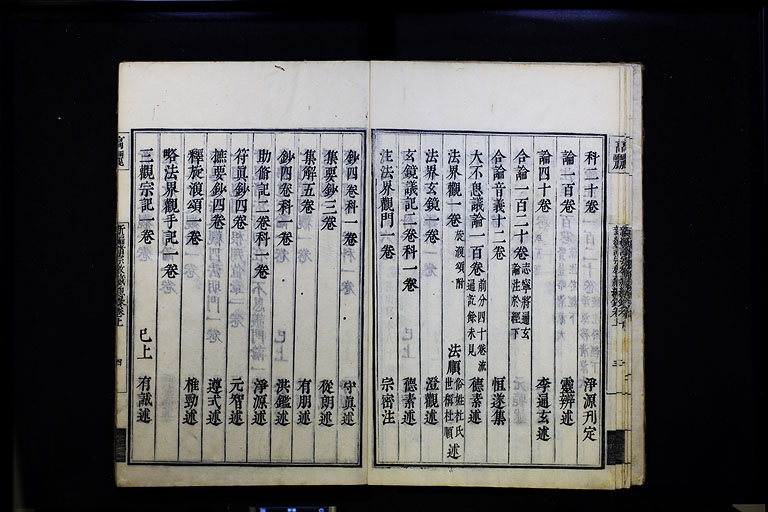 科二十卷 淨源刊定
論一百卷 靈辨述
論四十卷 李通玄述
合論一百二十卷 志寧將通玄論注於經下
合論音義十二卷 恒遂集
大不思議論一百卷 前分四十卷流通記餘未見 德素述
法界觀一卷 旋澓頌附 法順 俗姓杜氏世稱杜順 述
法界玄鏡一卷 澄觀述
玄鏡議記三卷科一卷 德素述
注法界觀門一卷 宗密注
鈔四卷科一卷 守真述
集要鈔三卷 從朗述
集解五卷 有朋述
鈔四卷科一卷 洪鑑述
助脩記二卷科一卷 淨源述
符真鈔四卷 元智述
摭要鈔四卷 遵式述
釋旋澓頌一卷 惟勁述
略法界觀手記一卷
三觀宗記一卷 已上 有誠述
高麗
四
三